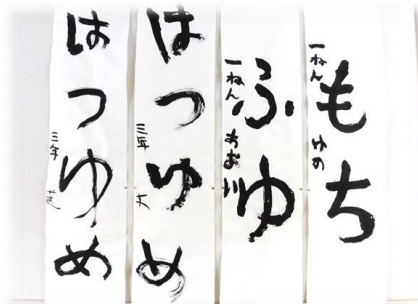 もち
一ねん ゆめ
ふゆ
一ねん あお
はつゆめ
三年
はつゆめ
三年